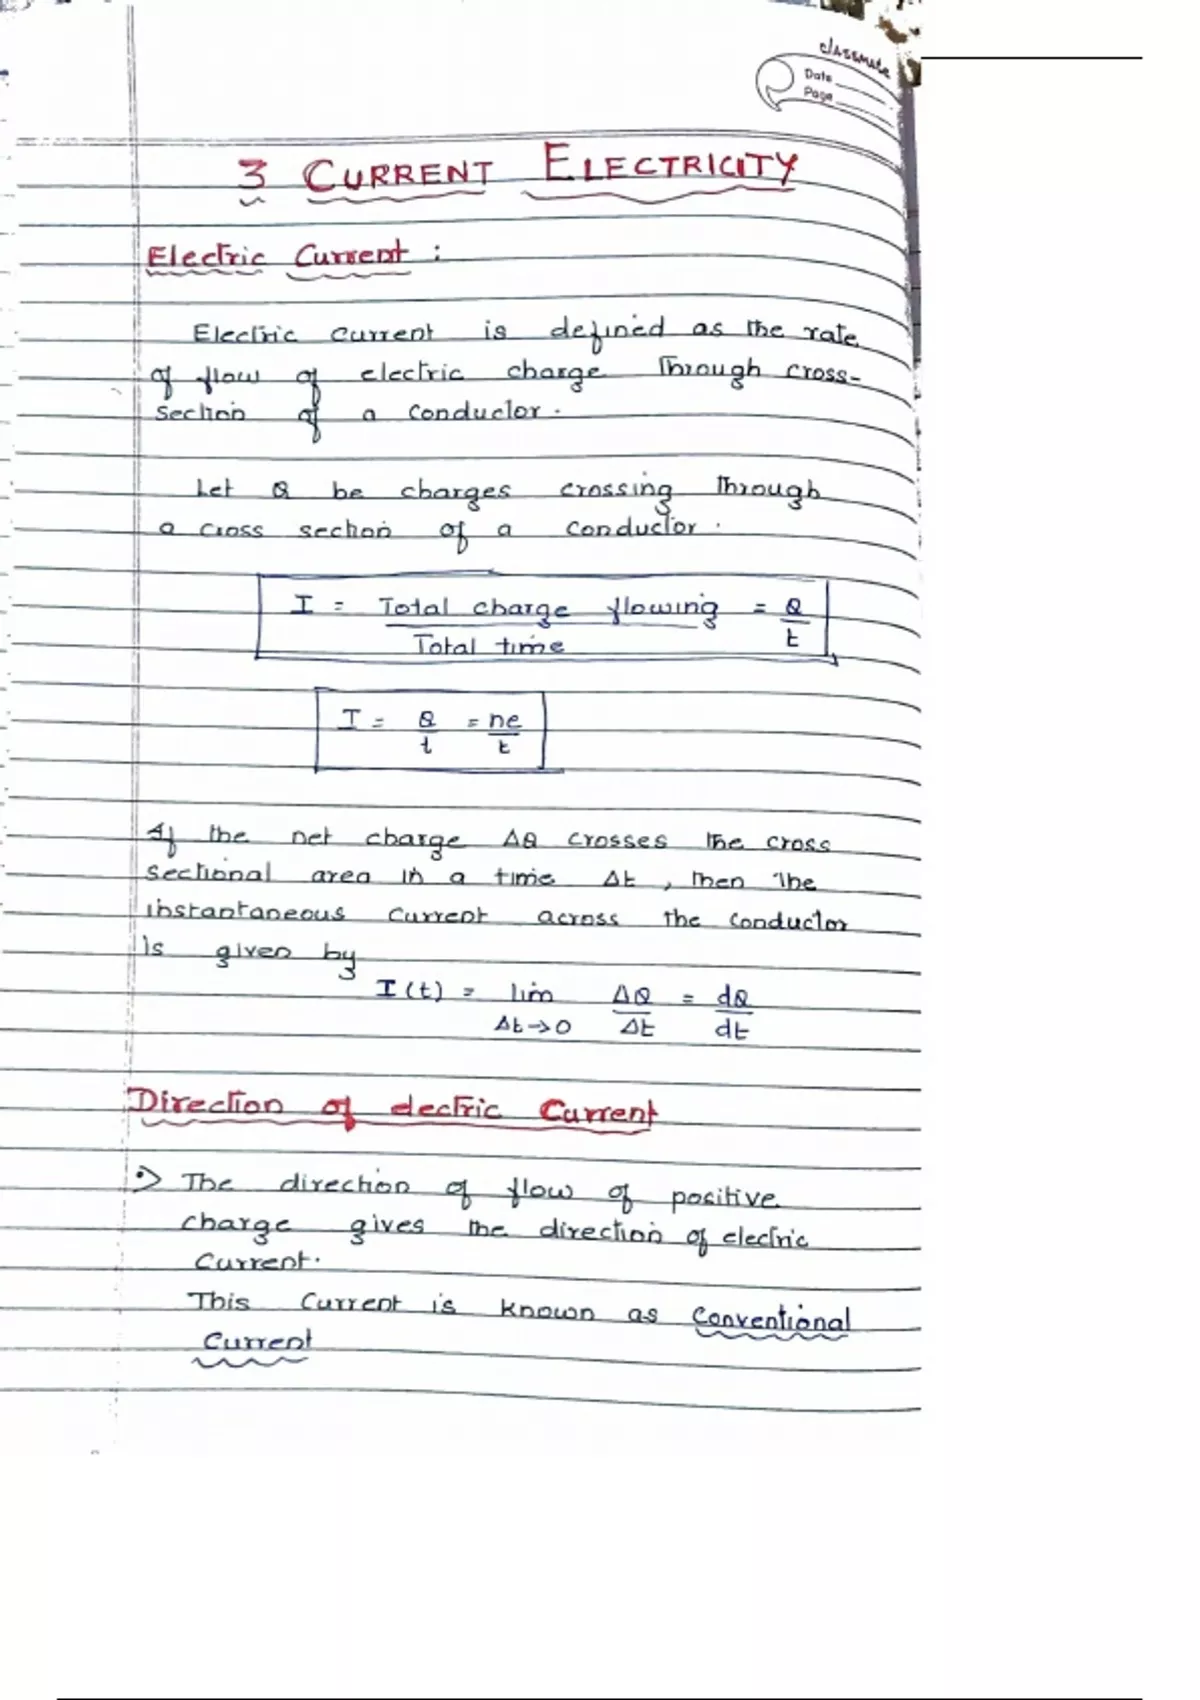 classmate
Date
Page
3 CURRENT ELECTRICITY
Electric Current :
Electric current is defined as the rate
of flow of electric charge through cross-
section of a conductor.
Let Q be charges crossing through
a cross section of a conductor.
I = Total charge flowing = Q
Total time t
I = Q = ne
t t
If the net charge ΔQ crosses the cross
sectional area in a time Δt, then the
instantaneous current across the conductor
is given by
I(t) = lim ΔQ = dQ
Δt→0 Δt dt
Direction of electric Current
The direction of flow of positive
charge gives the direction of electric
Current.
This Current is known as Conventional
Current